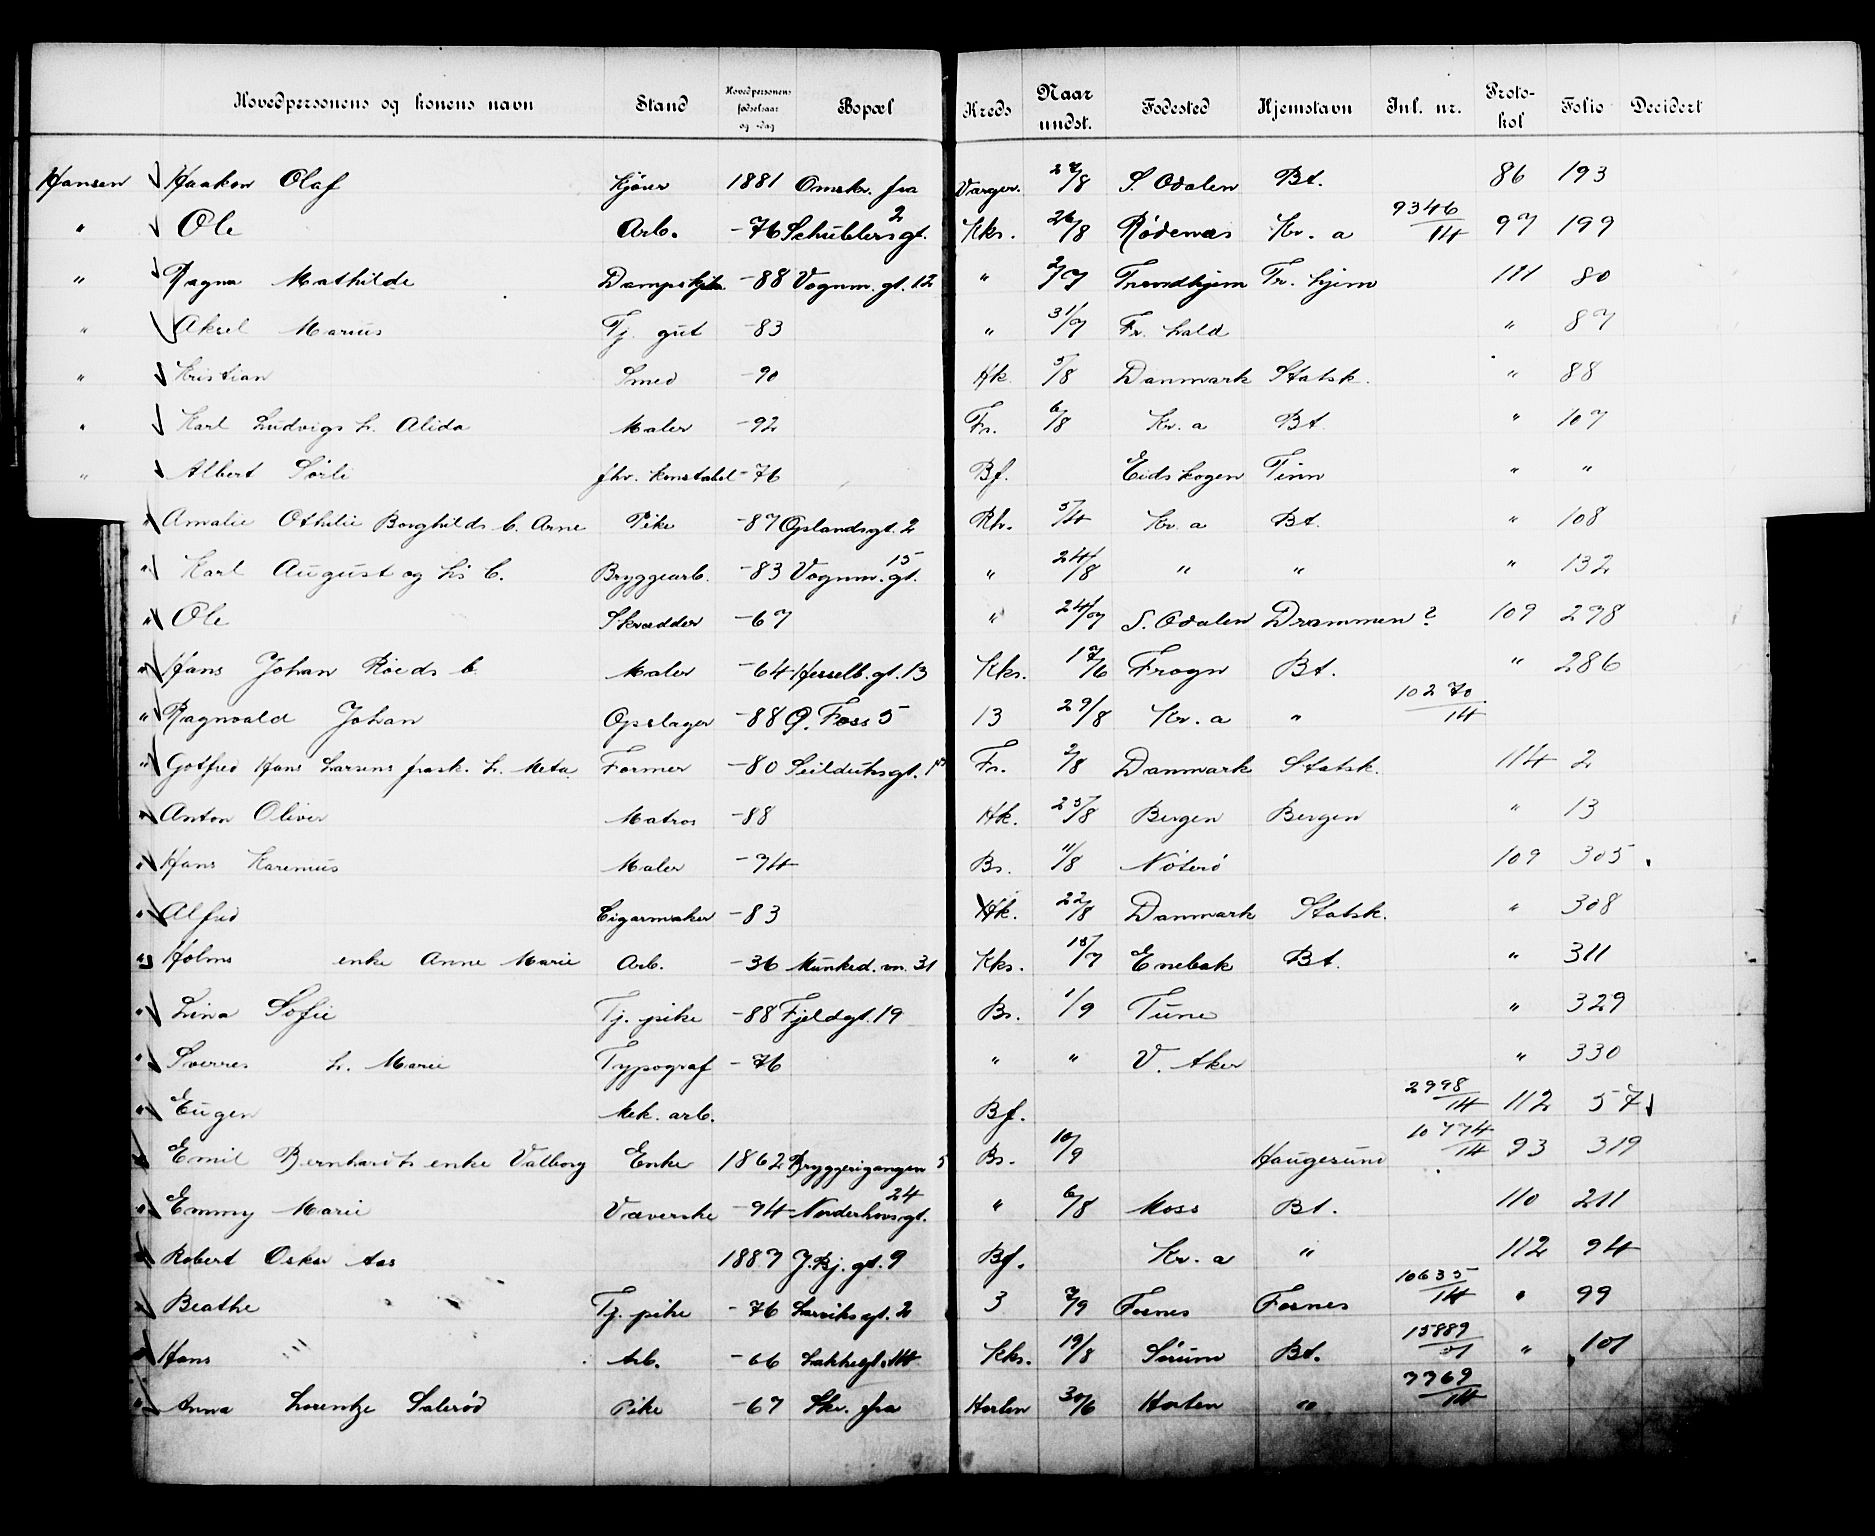 Hovedpersonens og konens navn Stand Hovedpersonens fødselsaar og -dag Bopæl Kreds Naar undst. Fødested Hjemstavn Inl. nr. Protokol Folio Decidert
Hansen Haakon Olaf Kjører 1881 Omskr. fra Varger. 27/8 S. Odalen Bt. 86 193
" Ole Arb. -76 Schüblersgt. 2 Kks. 26/8 Rødenæs Kr. a 9346/14 97 199
" Ragna Mathilde -88 Vognm. gt. 12 " 2/7 Trondhjem Tr. hjem 111 80
" Aksel Marius Tj. gut -83 " 31/7 Fr. hald " 87
" Kristian Smed -90 Hk. 5/8 Danmark Statsk. " 88
" Karl Ludvigs h. Alida Maler -92 Fr. 6/8 Kr. a Bt. " 107
" Albert Sørli fhv. konstabel -76 Bf. Eidskogen Tinn " "
" Amalie Othilie Borghilds b. Arne Pike -87 Oplandsgt. 2 Rh. 5/4 Kr. a Bt. " 108
" Karl August og hs b. Bryggearb. -83 Vognm. gt. 15 " 24/8 " " " 132
" Ole Skrædder -67 " 24/7 S. Odalen Drammen? 109 278
" Hans Johan Røeds b. Maler -64 Hesselb. gt. 13 Kks. 17/6 Frogn Bt. " 286
" Ragnvald Johan Opslager -88 Ø. Foss 5 13 29/8 Kr. a " 10270/14
" Gotfred Hans Larsens frask. h. Meta Former -80 Seilduksgt. Fr. 2/8 Danmark Statsk. 114 2
" Anton Oliver Matros -88 Hk. 25/8 Bergen Bergen " 13
" Hans Karenius Maler -74 Br. 11/8 Nøterø 109 305
" Alfred Cigarmaker -83 Hk. 22/8 Danmark Statsk. " 308
" Holms enke Anne Marie Arb. -36 Munked. vn. 31 Kks. 18/7 Enebak Bt. " 311
" Lina Sofie Tj. pike -88 Fjeldgt. 19 Br. 1/9 Tune " 329
" Sverres h. Marie Typograf -76 " " V. Aker " 330
" Eugen Mek. arb. Bf. 2998/14 112 57
" Emil Bernhardts enke Valborg Enke 1862 Bryggerigangen 5 Br. 10/9 Haugesund 10774/14 93 319
" Emmy Marie Væverske -94 Norderhovsgt. 24 " 6/8 Moss Bt. 110 211
" Robert Oskar Aas 1887 J. Bj. gt. 9 Bf. Kr. a " 112 94
" Beathe Tj. pike -76 Larviksgt. 2 3 7/9 Fosnes Fosnes 10635/14 " 99
" Hans Arb. -66 Lakkegt. 14 Kks. 19/8 Sørum Bt. 15889/01 " 101
" Anna Lorentze Salerød Pike -67 Skr. fra Horten 30/6 Horten " 7769/14